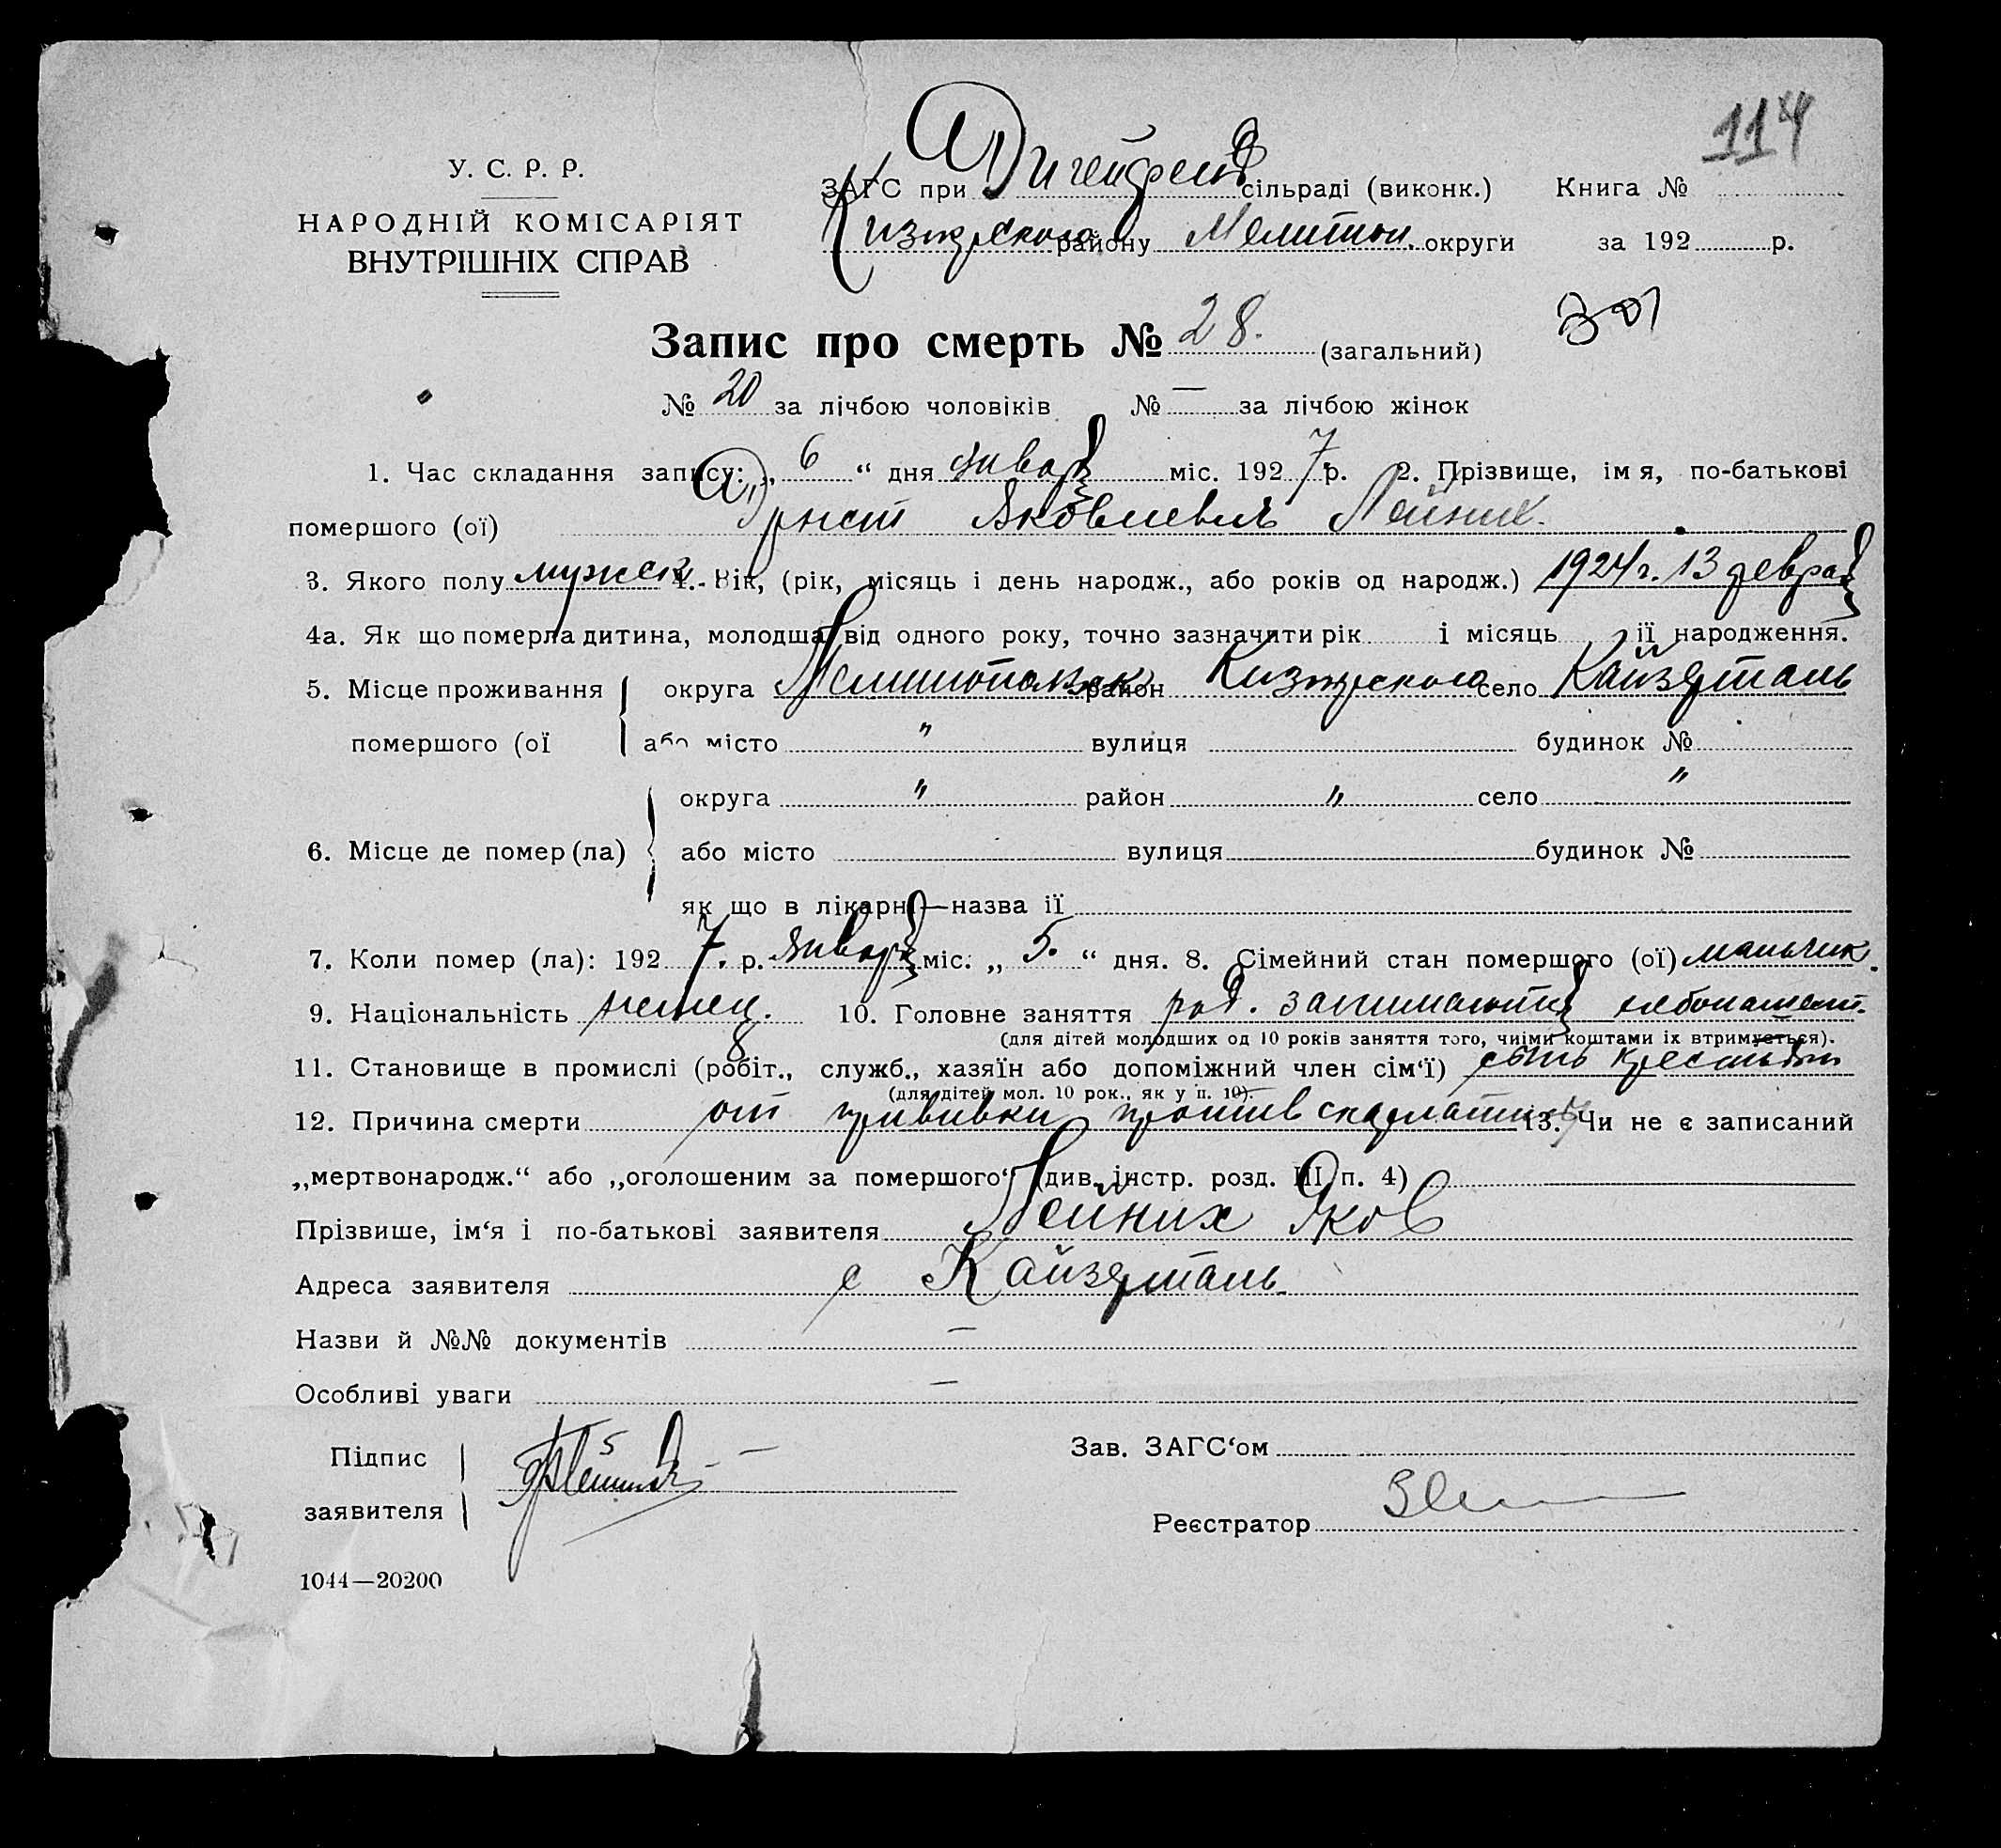 114
У. С. Р. Р.
НАРОДНІЙ КОМІСАРІЯТ
ВНУТРІШНІХ СПРАВ
ЗАГС при сільраді (виконк.) Книга №
Кизиярского району Мелитоп. округи за 192 р.
301
Запис про смерть № 28. (загальний)
№ 20 за лічбою чоловіків № — за лічбою жінок
1. Час складання запису: „ 6 “ дня января міс. 1927 р. 2. Прізвище, імя, по-батькові
помершого (ої) Эрнст Яковлевич Лейних.
3. Якого полу мужск 4. Вік, (рік, місяць і день народж., або років од народж.) 1924 г. 13 февраля
4а. Як що померла дитина, молодша від одного року, точно зазначити рік і місяць її народження.
5. Місце проживання округа Мелитопольск район Кизиярского село Кайзерталь
помершого (ої або місто " вулиця будинок №
округа " район " село "
6. Місце де помер (ла) або місто вулиця будинок №
як що в лікарні—назва її
7. Коли помер (ла): 1927. р. января міс. „ 5. “ дня. 8. Сімейний стан помершого (ої) мальчик.
9. Національність немец. 10. Головне заняття род. занимаются хлебопашест.
(для дітей молодших од 10 років заняття того, чиїми коштами їх втримується).
11. Становище в промислі (робіт., служб., хазяїн або допоміжний член сім‘ї) сын крестьян
(для дітей мол. 10 рок., як у п. 10).
12. Причина смерти от прививки против скарлатины 13. Чи не є записаний
„мертвонародж.“ або „оголошеним за помершого“ (див. інстр. розд. III п. 4)
Прізвище, ім‘я і по-батькові заявителя Лейних Яков
Адреса заявителя с Кайзерталь
Назви й №№ документів —
Особливі уваги —
Підпис
заявителя
Зав. ЗАГС‘ом
Реєстратор
1044—20200